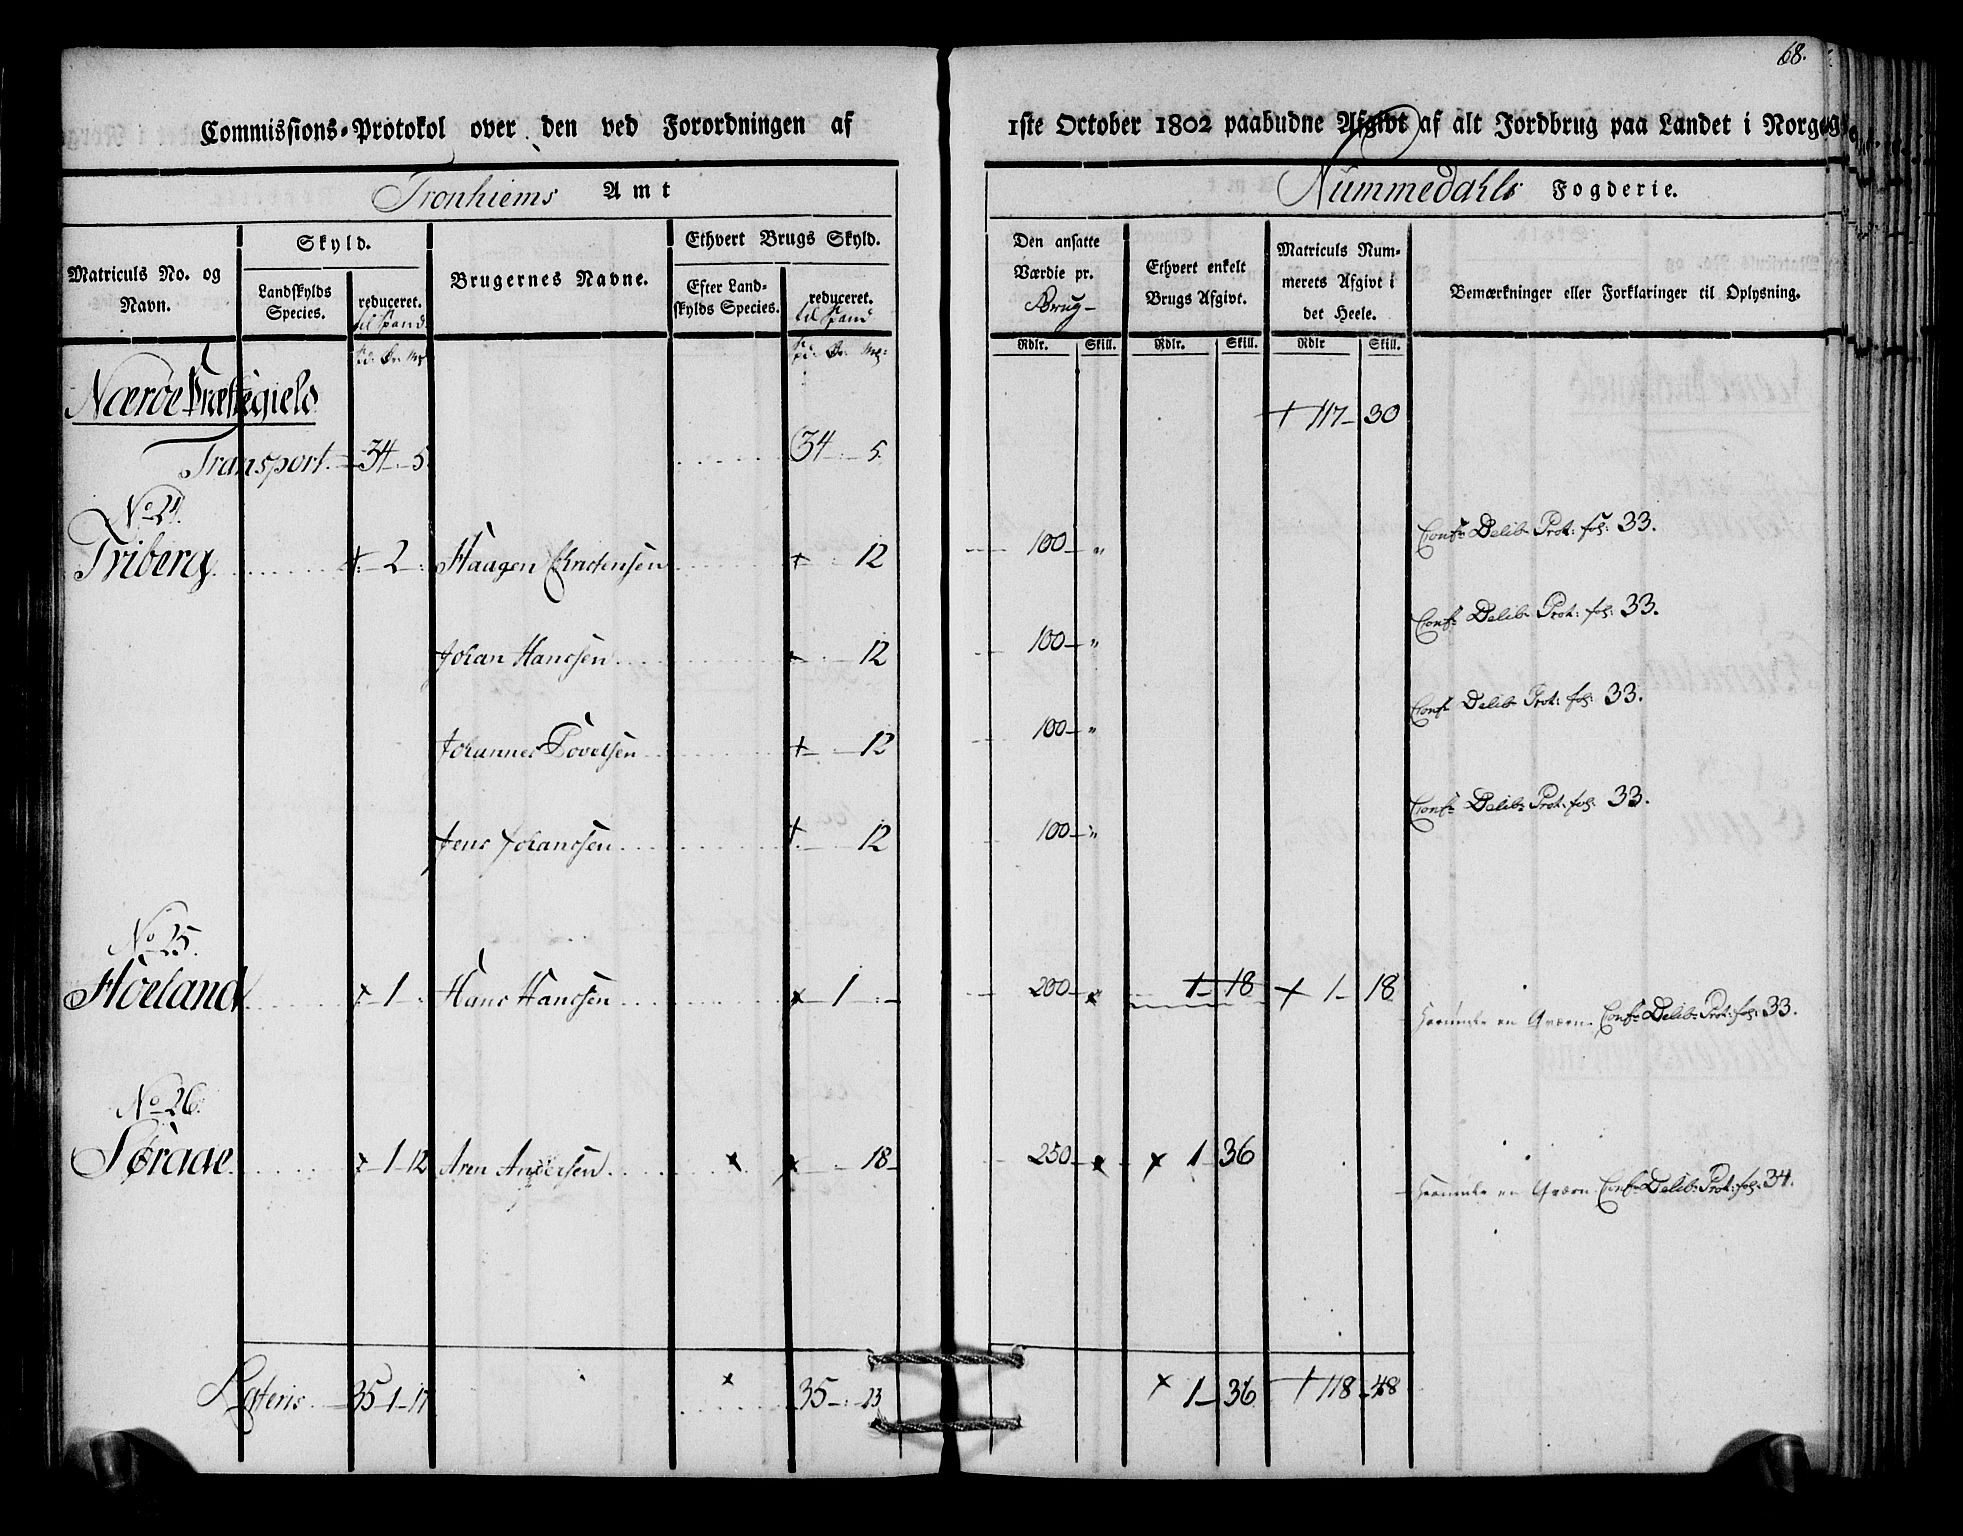 68.
Commissions-Protokol over den ved Forordningen af 1ste October 1802 paabudne Afgivt af alt Jordbrug paa Landet i Norge
Tronhiems Amt
Nummedahls Fogderie.
Matriculs No. og Navn.
Skyld.
Landskylds Species.
reduceret. til Spand
Brugernes Navne.
Ethvert Brugs Skyld.
Efter Landskylds Species.
reduceret. til Spand
Den ansatte Værdie pr. Brug
Ethvert enkelt Brugs Afgivt.
Matriculs Nummerets Afgivt i det Heele.
Bemærkninger eller Forklaringer til Oplysning.
Sp: Ør: Mk:
Rdlr. Skill. Rdlr. Skill. Rdlr Skill.
Nærøe Præstegield
+ 117 - 30
Transport. 34 - 5 34 - 5.
No 24.
Triberg + - 2 - Haagen Christensen + - 12 100 - " Conf: Delib: Prot: fol: 33.
Johan Hanssen + - 12 100 - " Conf: Delib: Prot: fol: 33.
Johannes Povelsen + - 12 100 - " Conf: Delib: Prot: fol: 33.
Jens Johanssen + - 12 100 - " Conf: Delib: Prot: fol: 33.
No 25.
Høeland x - 1 - Hans Hanssen x - 1 - 200 - x 1 - 18 + 1 - 18 Herunder en Qværn. Conf: Delib: Prot: fol: 33.
No 26.
Søraae x - 1 - 12 Aren Andersen x x - 18 250 - x x 1 - 36 Herunder en Qværn Conf: Delib: Prot: fol: 34.
Lateris 35 - 1 - 17 x 35 - 23 x 1 - 36 + 118 - 48